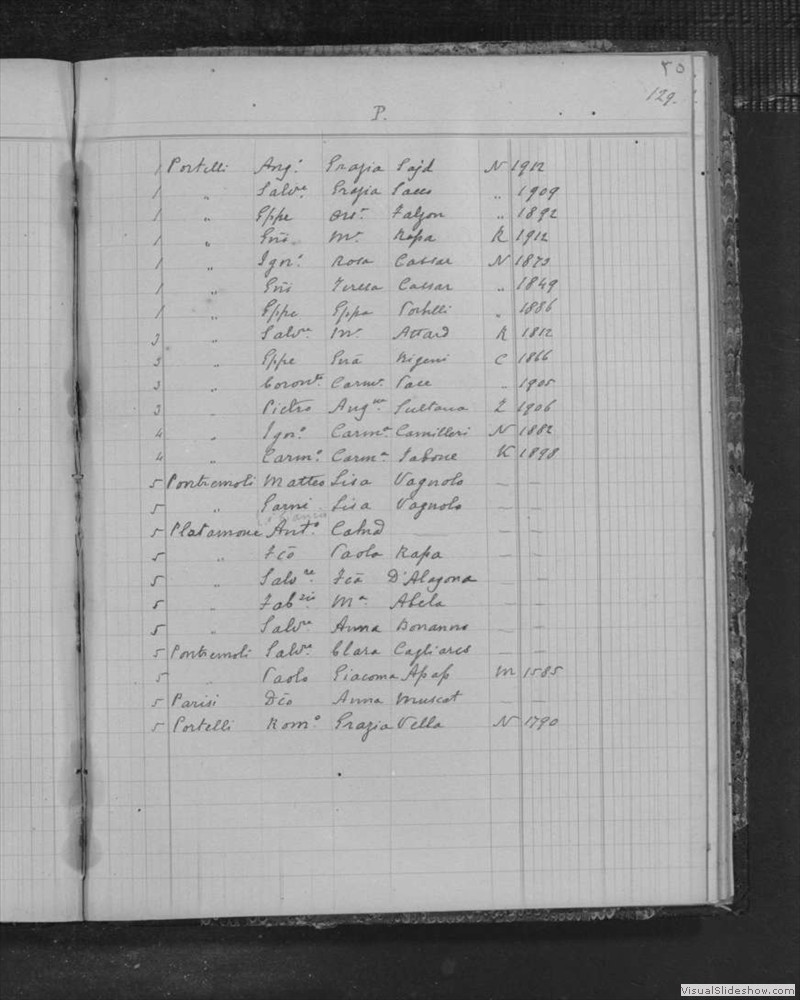 ٣٥
129.
P.
1 Portelli Ang.º Grazia Sajd N 1912
1 " Salv.re Grazia Sacco " 1909
1 " Gppe Falzon " 1892
1 " Gni M.ª Rapa R 1912
1 " Ign.º Rosa Cassar N 1873
1 " Gni Teresa Cassar " 1849
1 " Gppe Gppa Portelli " 1886
3 " Salv.re M.ª Attard R 1812
3 " Gppe Gnã C 1866
3 " Coron.to Carm.ª Pace " 1905
3 " Pietro Ang.ca Sultana Z 1906
4 " Ign.º Carm.ª Camilleri N 1882
4 " Carm.º Carm.ª Tabone K 1898
5 Pontremoli Matteo Lisa Vagnolo — —
5 " Lisa Vagnolo — —
5 Platamone Ant.º — — —
5 " Fcõ Paola Rapa — —
5 " Salv.re Fcã D'Alagona — —
5 " Fab.zio M.ª Abela — —
5 " Salv.re Anna Bonanno — —
5 Pontremoli Salv.re Clara Cagliares — —
5 " Paolo Giacoma Apap M 1585
5 Parisi Dcõ Anna Muscat — —
5 Portelli Rom.º Grazia Vella N 1790
VisualSlideshow.com